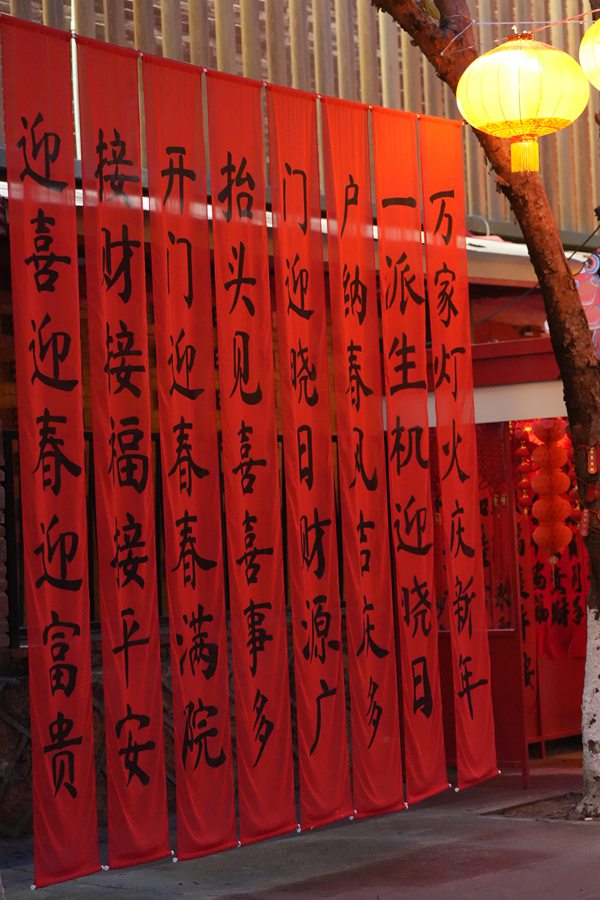 迎喜迎春迎富贵
接财接福接平安
开门迎春春满院
抬头见喜喜事多
门迎晓日财源广
户纳春风吉庆多
一派生机迎晓日
万家灯火庆新年